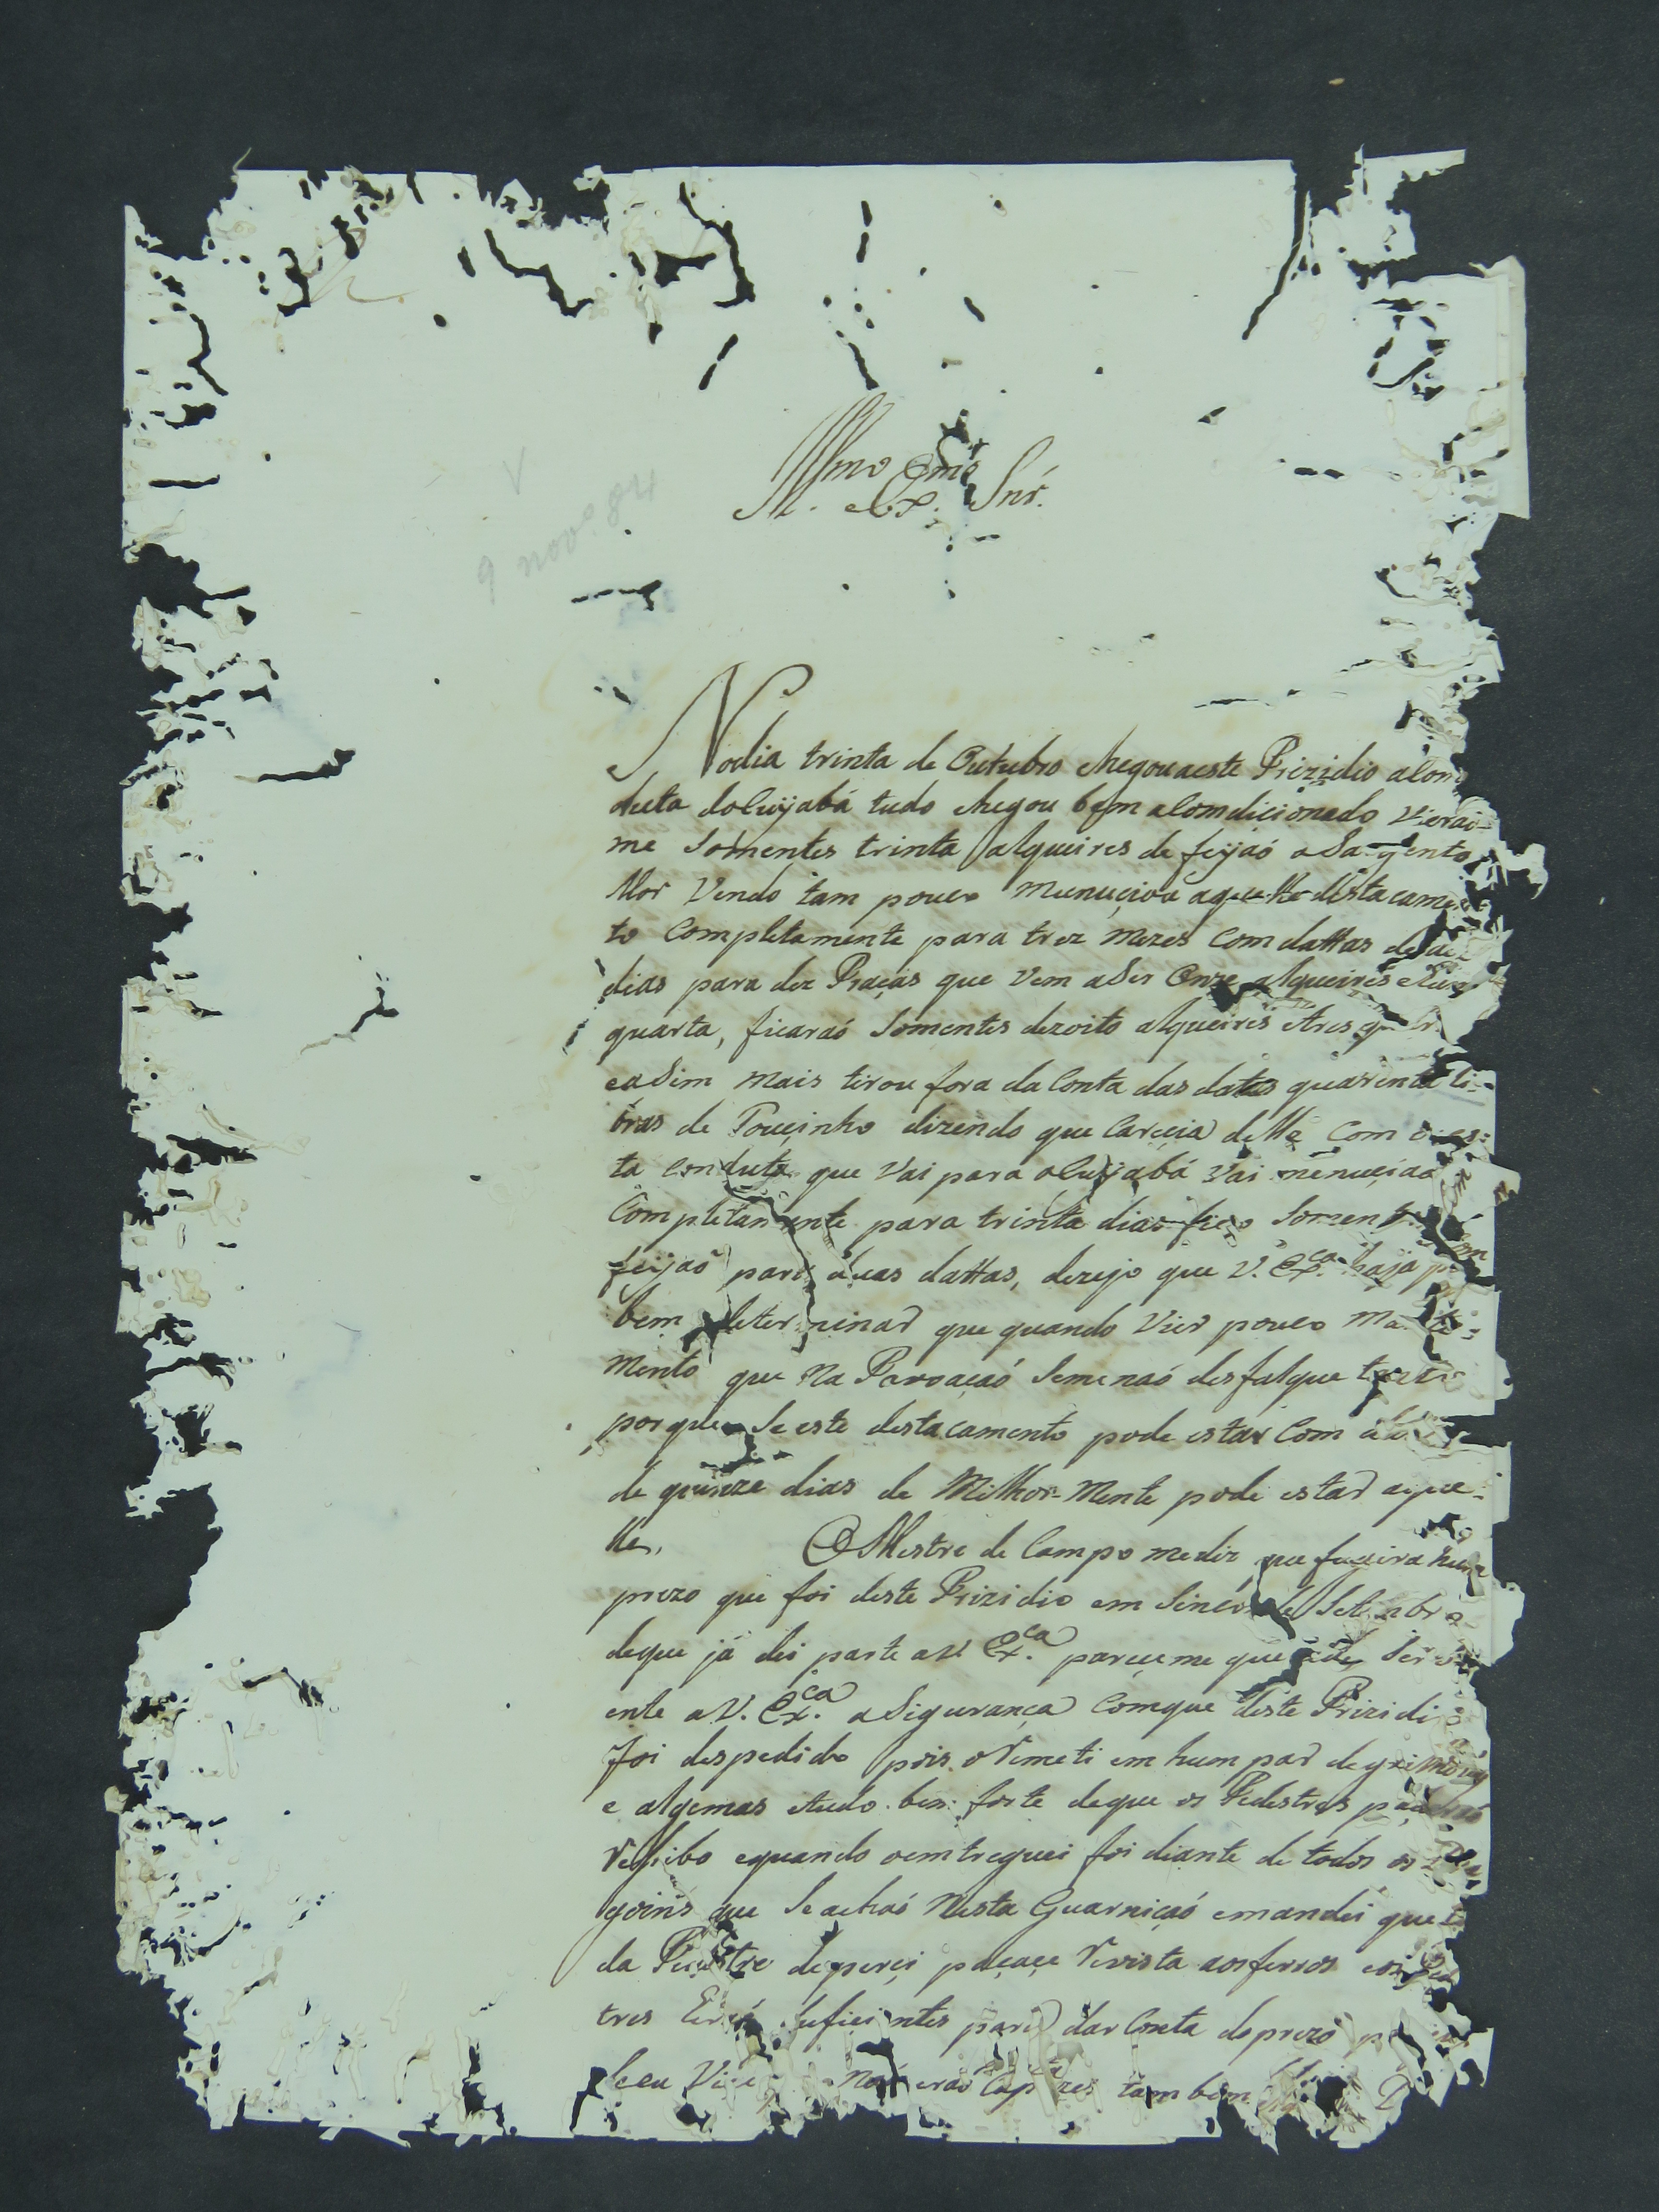 9 nov.º 84
Illmo Exmo
Snr.
No dia trinta de Outubro chegou aeste Prizidio a Con
duta do Cuyabá tudo chegou bem a Comdicionado Vieraó
me Somentes trinta alqueires de feijaó o Sargento
Mor Vendo tam pouco Munuçiou aquelle destacamen
to Completamente para trez mezes Com dattas de
dias para dez Praças que Vem a Ser Onze alqueires e
quarta, ficaraó Somentes dezoito alqueires e tres
e aSim mais tirou fora da Conta das datas quarenta li-
bras de Touçinho dizendo que Careçia delle Com
ta conduta que Vai para o Cuyabá Vai menuçiado
Completamente para trinta dias fico Somente
feijaó para duas dattas, dezejo que V. Ex.ca haja por
bem determinar que quando Vier pouco Manti-
mento que Na Povoaçaó Se me naó desfalque
porque Se este destacamento pode estar Com
de quinze dias de Milhor-Mente pode estar aque-
lle. O Mestre de Campo me diz que fugira hum
prezo que foi deste Prizidio em Sinco de Setembro
de que já dei parte a V. Ex.ca pareçe me que
ente a V. Ex.ca a Sigurança Com que deste Prizidio
foi despedido pois o remeti em hum par de grilhões
e algemas e tudo bem forte de que os Pedestres
reçibo e quando o emtreguei foi diante de todos os
goins que Se achaó Nesta Guarniçaó e mandei que
da Pedestre de persi paçaçe revista aos ferros e os
tres Suficientes para dar Conta do prezo
Naó eraó Capazes tambem